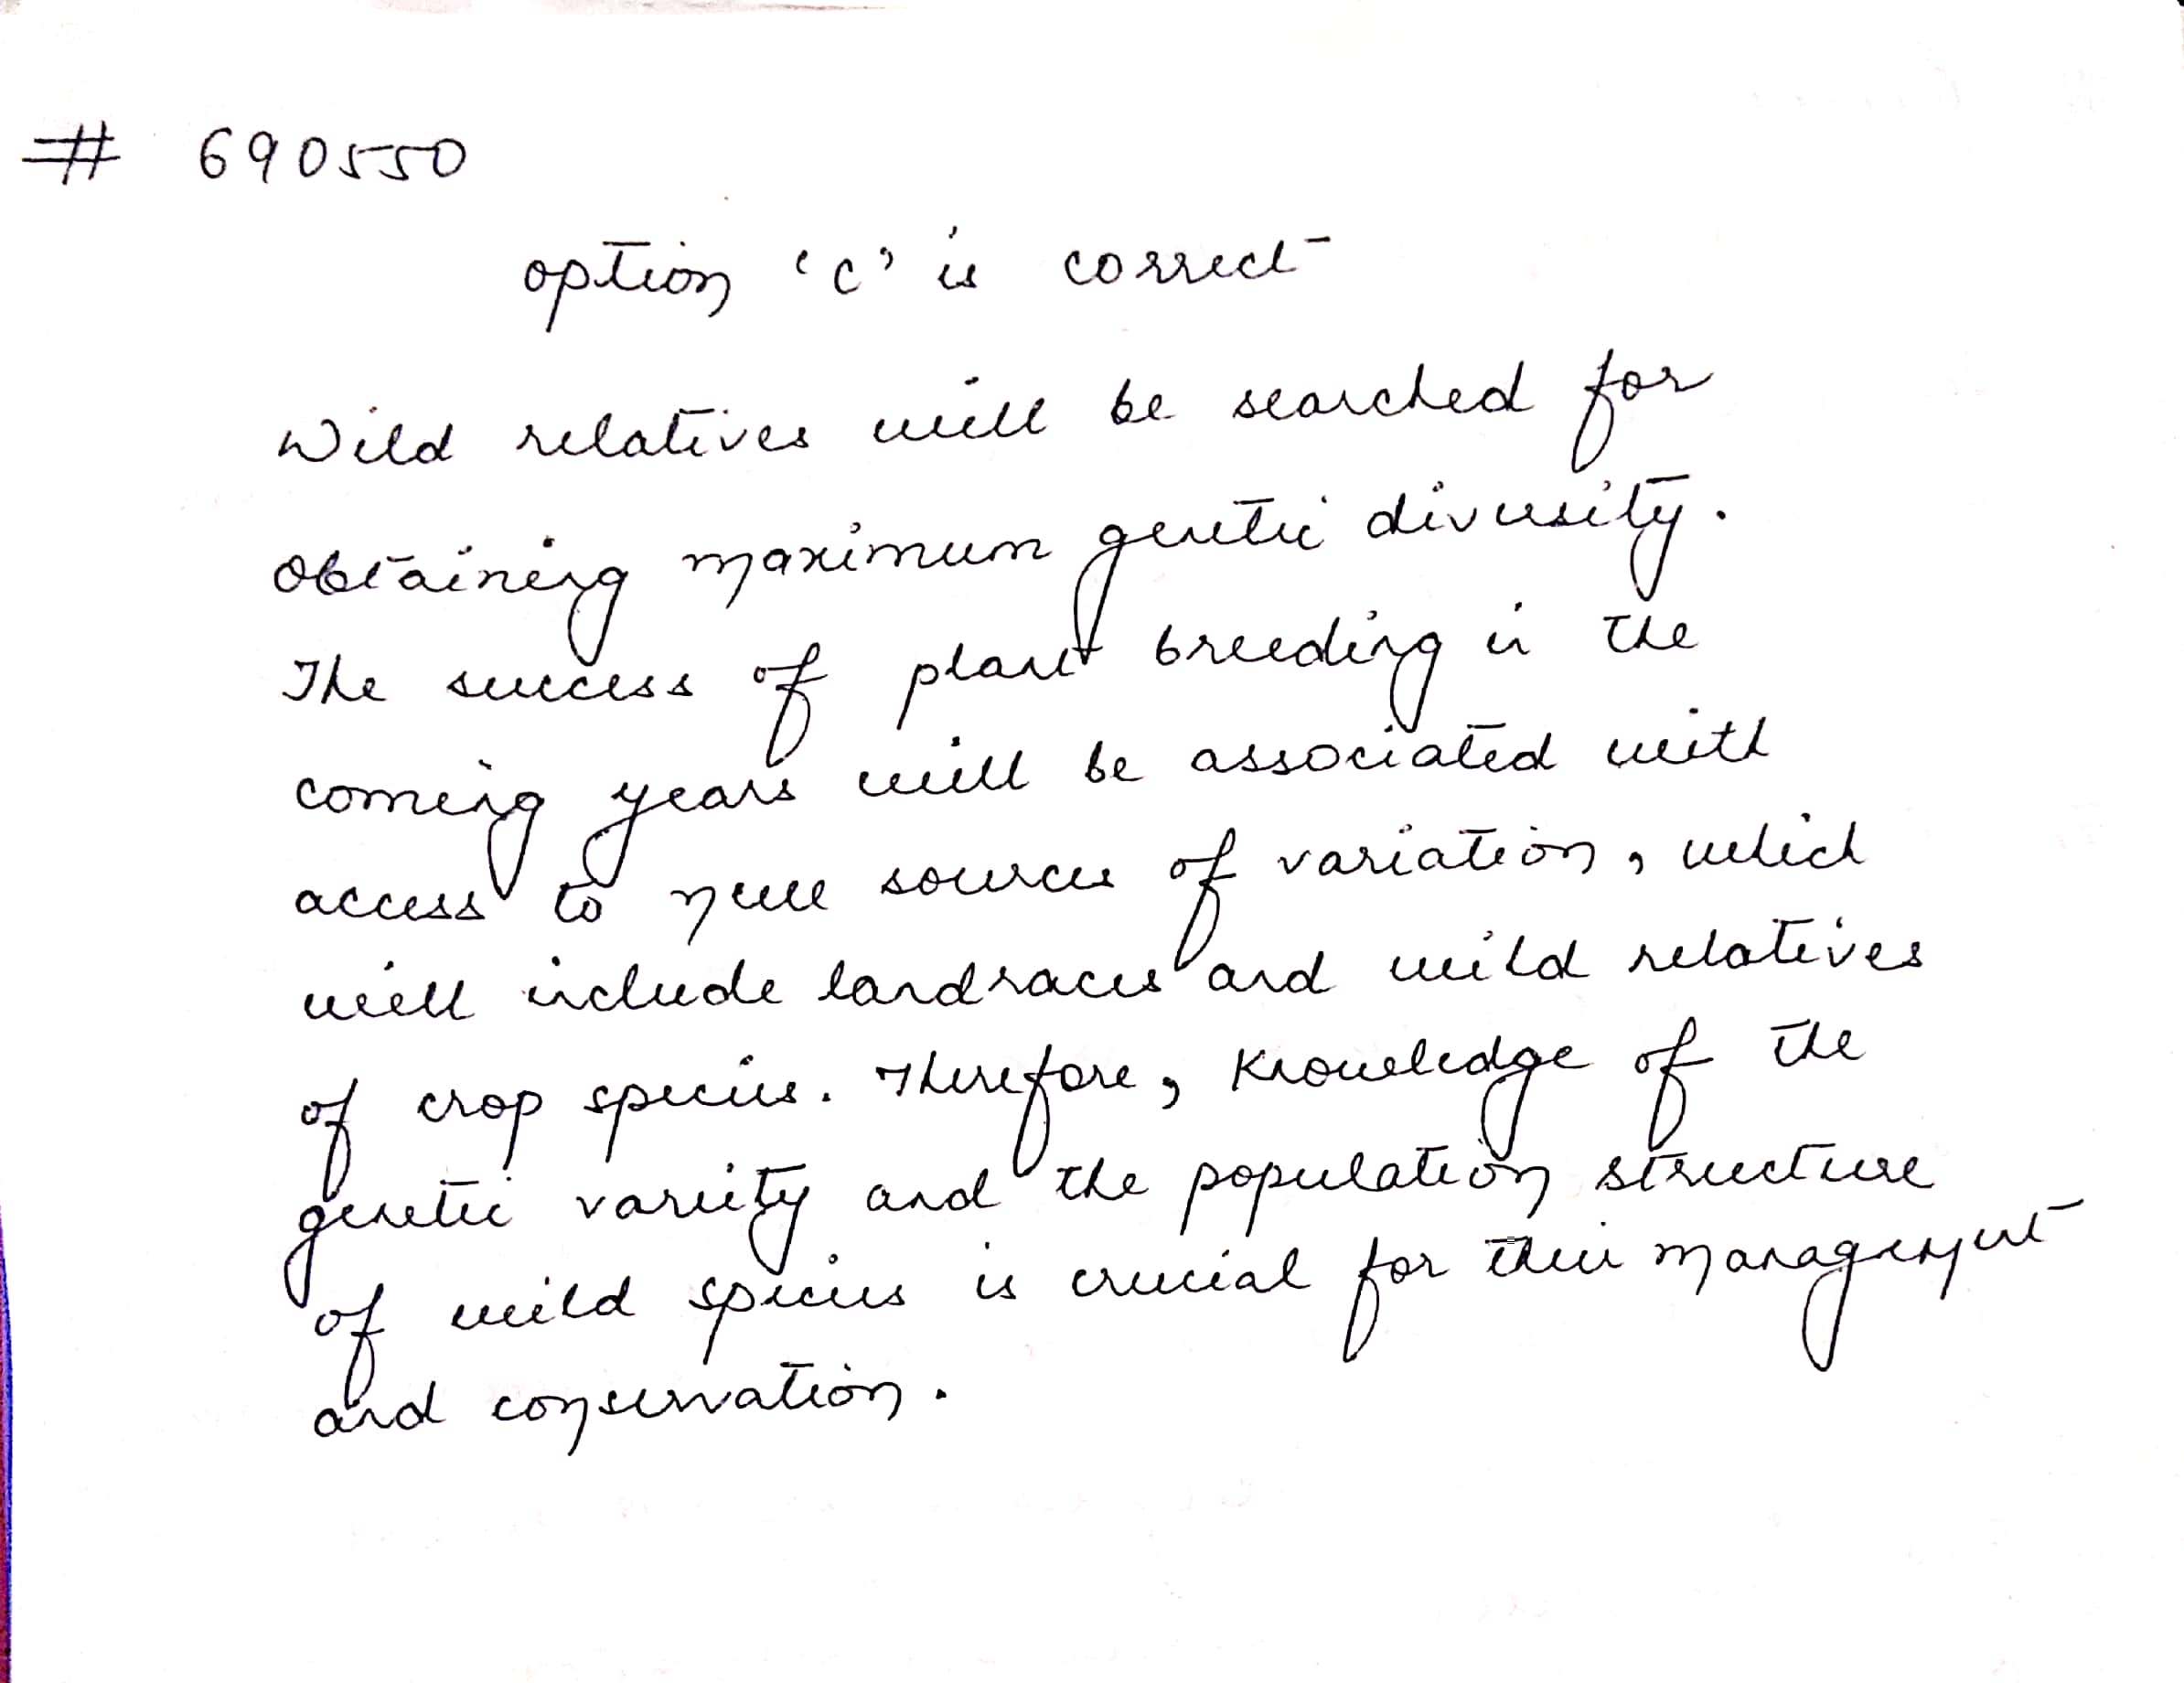 # 690550
option 'c' is correct
Wild relatives will be searched for
obtaining maximum genetic diversity.
The success of plant breeding in the
coming years will be associated with
access to new sources of variation, which
will include landraces and wild relatives
of crop species. Therefore, knowledge of the
genetic variety and the population structure
of wild species is crucial for their management
and conservation.